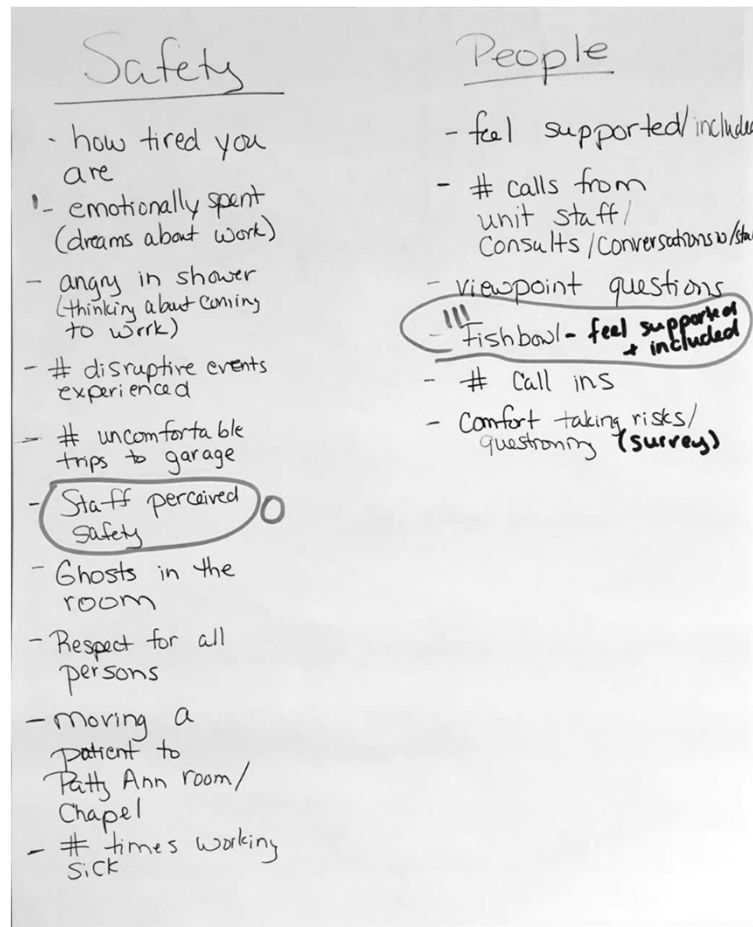 Safety
- how tired you
are
- emotionally spent
(dreams about work)
- angry in shower
(thinking about coming
to work)
- # disruptive events
experienced
- # uncomfortable
trips to garage
- Staff perceived
safety
- Ghosts in the
room
- Respect for all
persons
- moving a
patient to
Patty Ann room/
Chapel
- # times working
sick
People
- feel supported/include
- # calls from
unit staff/
Consults/conversations w/sta
- viewpoint questions
- Fishbowl - feel supported
+ included
- # Call ins
- Comfort taking risks/
questioning (survey)